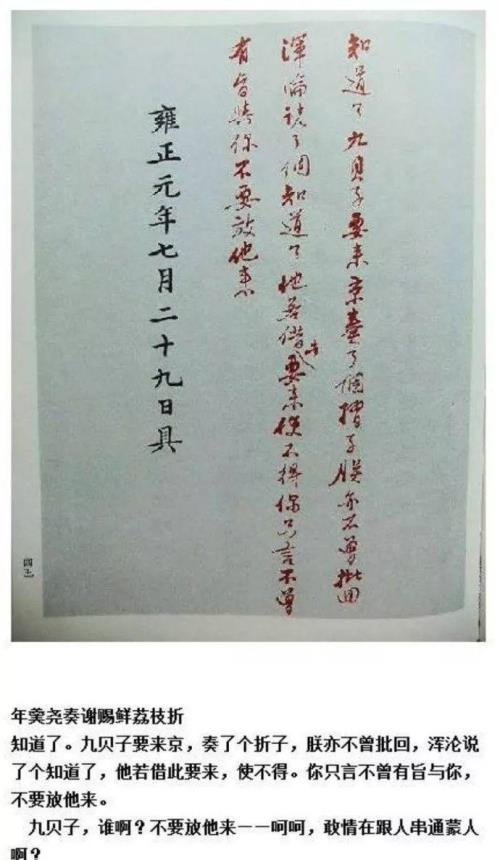 知道了九貝子要来京奏了個摺子朕亦不曾批回
渾淪說了個知道了他若借此要来使不得你只言不曾
有旨與你不要放他来
雍正元年七月二十九日具
年羹尧奏谢赐鲜荔枝折
知道了。九贝子要来京，奏了个折子，朕亦不曾批回，浑沦说
了个知道了，他若借此要来，使不得。你只言不曾有旨与你，
不要放他来。
九贝子，谁啊？不要放他来——呵呵，敢情在跟人串通蒙人
啊？